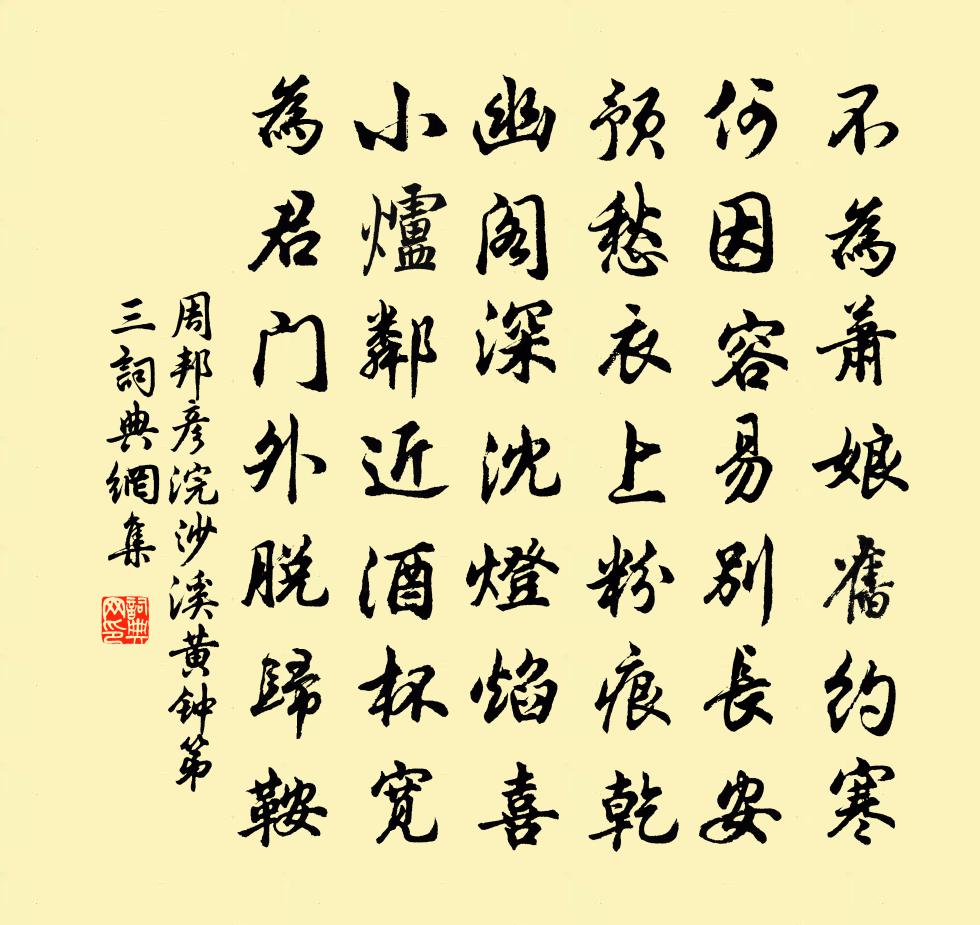 不為蕭娘舊約寒
何因容易別長安
預愁衣上粉痕乾
幽閣深沈燈焰喜
小爐鄰近酒杯寬
為君门外脫歸鞍
周邦彥浣沙溪黄钟第
三詞典網集
詞典网印